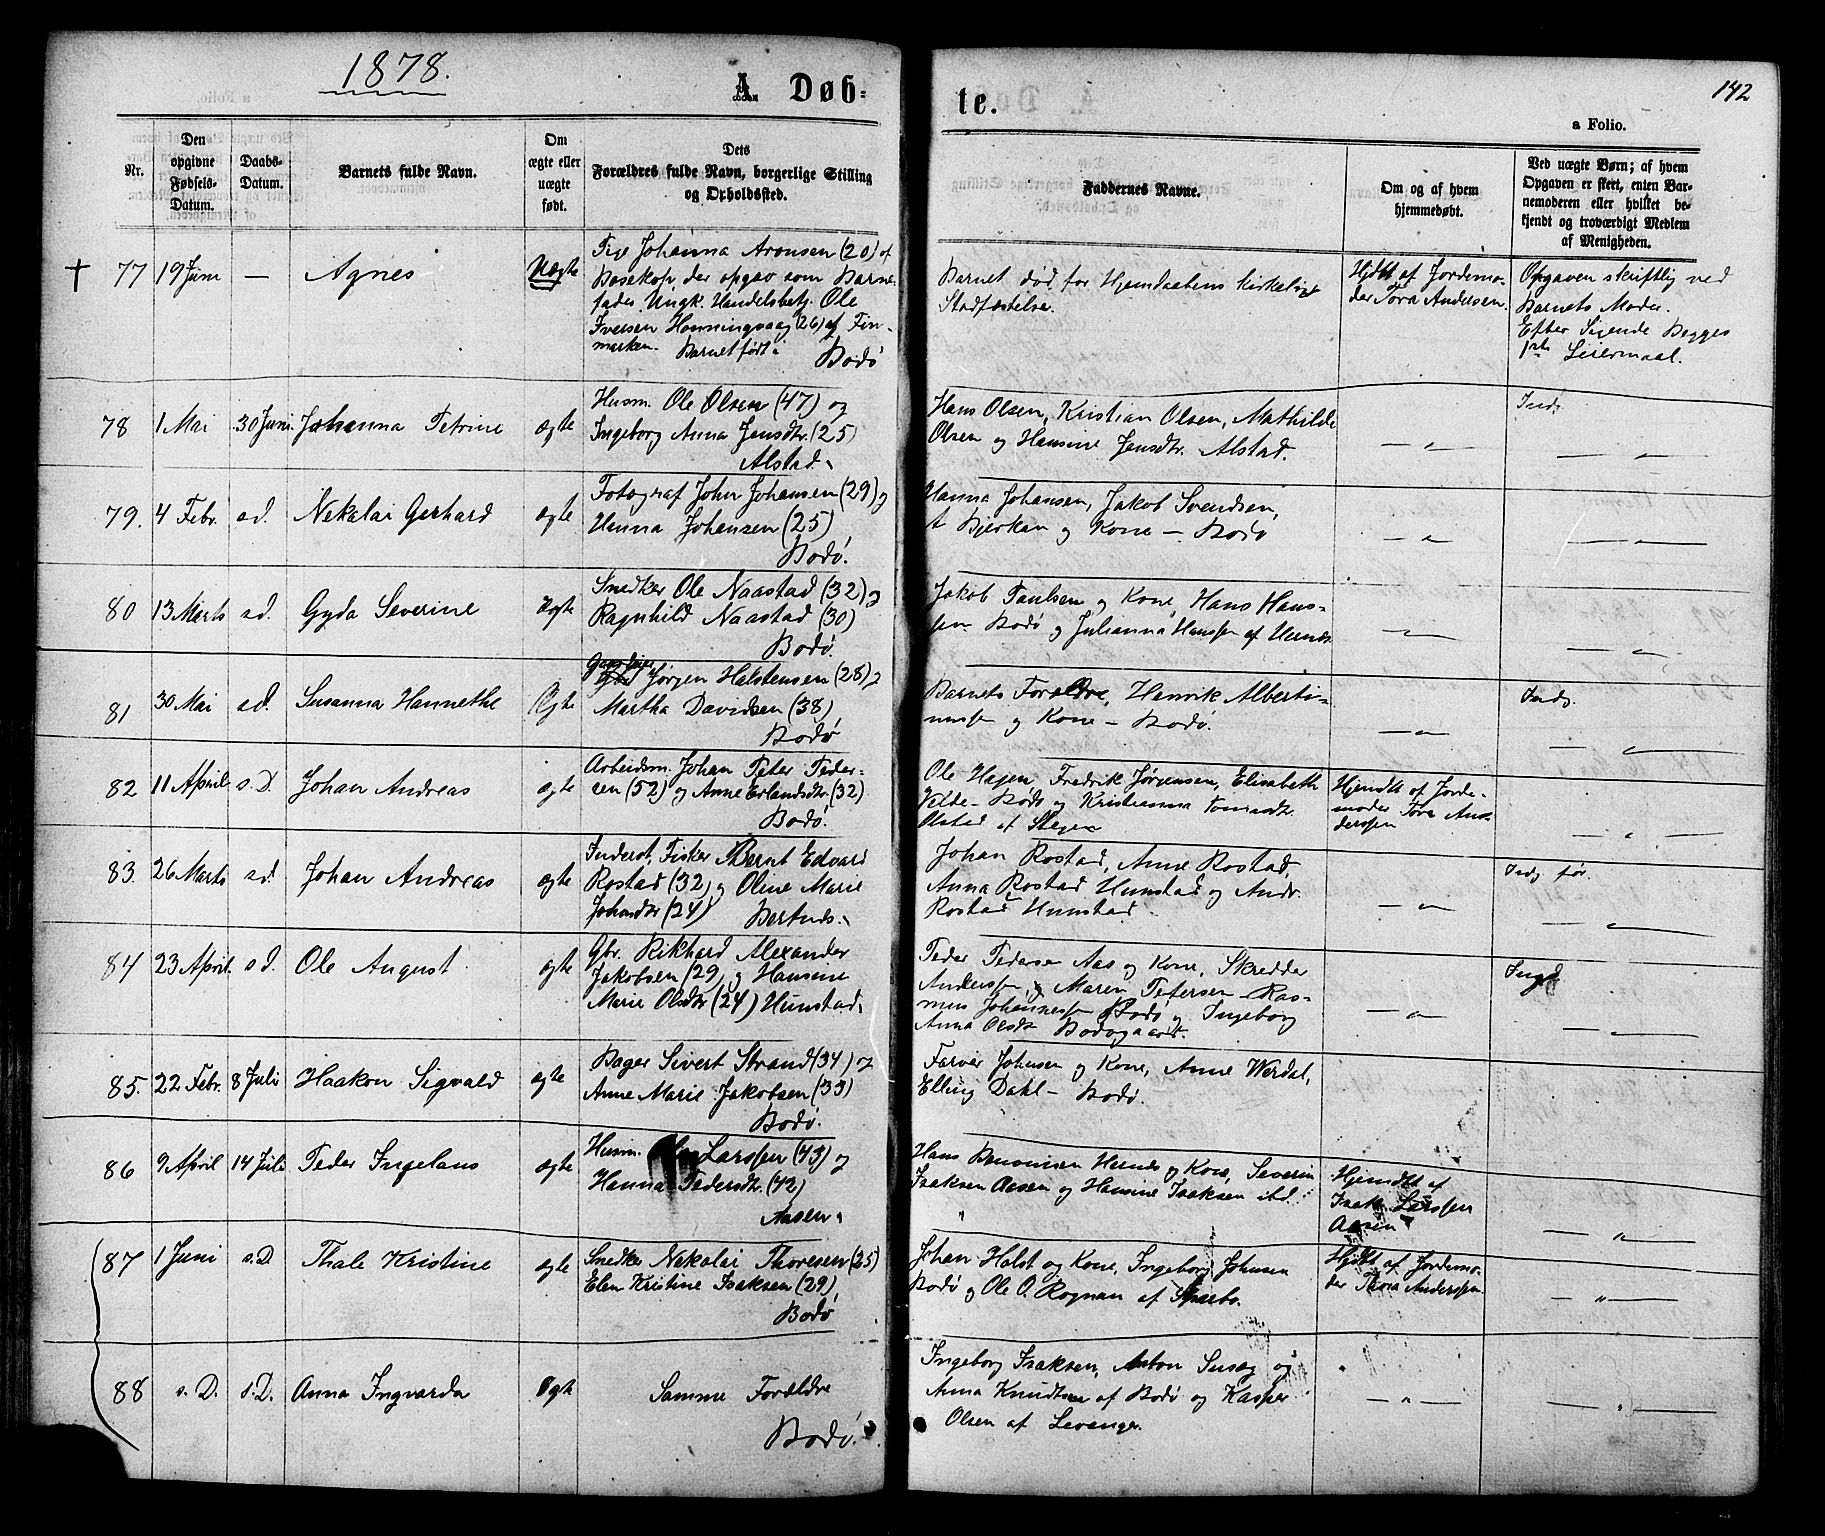 1878.
A. Døb=
te.
142
a Folio.
Nr.
Den
opgivne
Fødsels-
Datum.
Daabs-
Datum.
Barnets fulde Navn.
Om
ægte eller
uægte
født.
Dets
Forældres fulde Navn, borgerlige Stilling
og Opholdssted.
Faddernes Navne.
Om og af hvem
hjemmedøbt.
Ved uægte Børn; af hvem
Opgaven er skeet, enten Bar-
nemoderen eller hvilket be-
kjendt og troværdigt Medlem
af Menigheden.
† 77 19 Juni — Agnes Uægte
Pige Johanna Aronsen (20) af
Bosekop, der opgav som Barne-
fader Ungk. Handelsbetj. Ole
Iversen Honningsvaag (26) af Fin-
marken. Barnet født i Bodø
Barnet død før Hjemdaabens kirkelige
Stadfæstelse.
Hjdbt af Jordemo-
der Tora Andersen.
Opgaven skriftlig ved
Barnets Moder.
Efter Sigende Begges
1ste Leiermaal.
78 1 Mai 30 Juni Johanna Petrine ægte
Husm. Ole Olsen (47) og
Ingeborg Anna Jensdtr. (25)
Alstad.
Hans Olsen, Kristian Olsen, Mathilde
Olsen og Hansine Jensdtr. Alstad.
— " —
Inds
— " —
79. 4 Febr. s.d. Nekolai Gerhard ægte
Fotograf John Johansen (29) og
Hanna Johansen (25)
Bodø.
Hanna Johansen, Jakob Svendsen,
Bjerkan og Kone — Bodø
— " —
— " —
80 13 Marts s.d. Gyda Severine ægte
Snedker Ole Naastad (32) og
Ragnhild Naastad (30)
Bodø.
Jakob Paulsen og Kone, Hans Hans-
sen Bodø og Julianna Hanssen af Hernes
— " —
— " —
81 30 Mai s.d. Susanna Hannethe Ægte
Jørgen Halstensen (28) og
Martha Davidsen (38)
Bodø
Barnets Forældre, Henrik Alberti-
nussen og Kone — Bodø.
— " —
Inds.
— " —
82 11 April s.D. Johan Andreas ægte
Arbeidsm. Johan Peter Peder-
sen (52) og Anne Erlandsdtr. (32)
Bodø.
Ole Hagen, Fredrik Jørgensen, Elisabeth
Velde — Bodø og Kristianna
Olstad af Steigen
Hjemdbt af Jorde-
moder Tora An-
derssen
— " —
83. 26 Marts s.d. Johan Andreas ægte
Inderst, Fisker Bernt Edvard
Rostad (32) og Oline Marie
Johansdtr (24)
Johan Rostad, Anne Rostad,
Anna Rostad Hunstad og Andr.
Rostad Hunstad.
— " —
Inds før.
— " —
84 23 April. s.d. Ole August ægte
Gbr. Rikhard Alexander
Jakobsen (29) og Hansine
Marie Olsdtr (24) Hunstad.
Peder Pedersen Aas og Kone, Skredder
Anderssen, og Maren Petersen — Ras-
mus Johannessen Bodø og Ingeborg
Anna Olsdtr Bodøgaard.
— " —
— " —
85. 22 Febr. 8 Juli Haakon Sigvald ægte
Bager Sivert Strand (34) og
Anne Marie Jakobsen (33)
Bodø.
Farver Johnsen og Kone, Anne Werdal,
Elling Dahl — Bodø.
86 9 April 14 Juli Peder Ingelaus ægte
Husm. Larssen (43) og
Hanna Pedersdtr. (42)
Aasen.
Hans Benonisen Hernes og Kone, Severin
Isaksen Aasen og Hansine Isaksen ibd.
Hjemdbt af
Isak Larssen
Aasen
— " —
87 1 Juni s.D Thale Kristine ægte
Snedker Nekolai Thoresen (25)
Elen Kristine Isaksen (29)
Bodø
Johan Holst og Kone, Ingeborg Johnsen
Bodø og Ole O. Rognan af Sparbo.
Hjdbt af Jordemo-
der Thora Anderssen.
— " —
88 s.D. s.D. Anna Ingvarda ægte
Samme Forældre
Bodø.
Ingeborg Isaksen, Anton Susæg og
Anna Knudtsen af Bodø og Kasper
Olsen af Levanger.
— " —
— " —